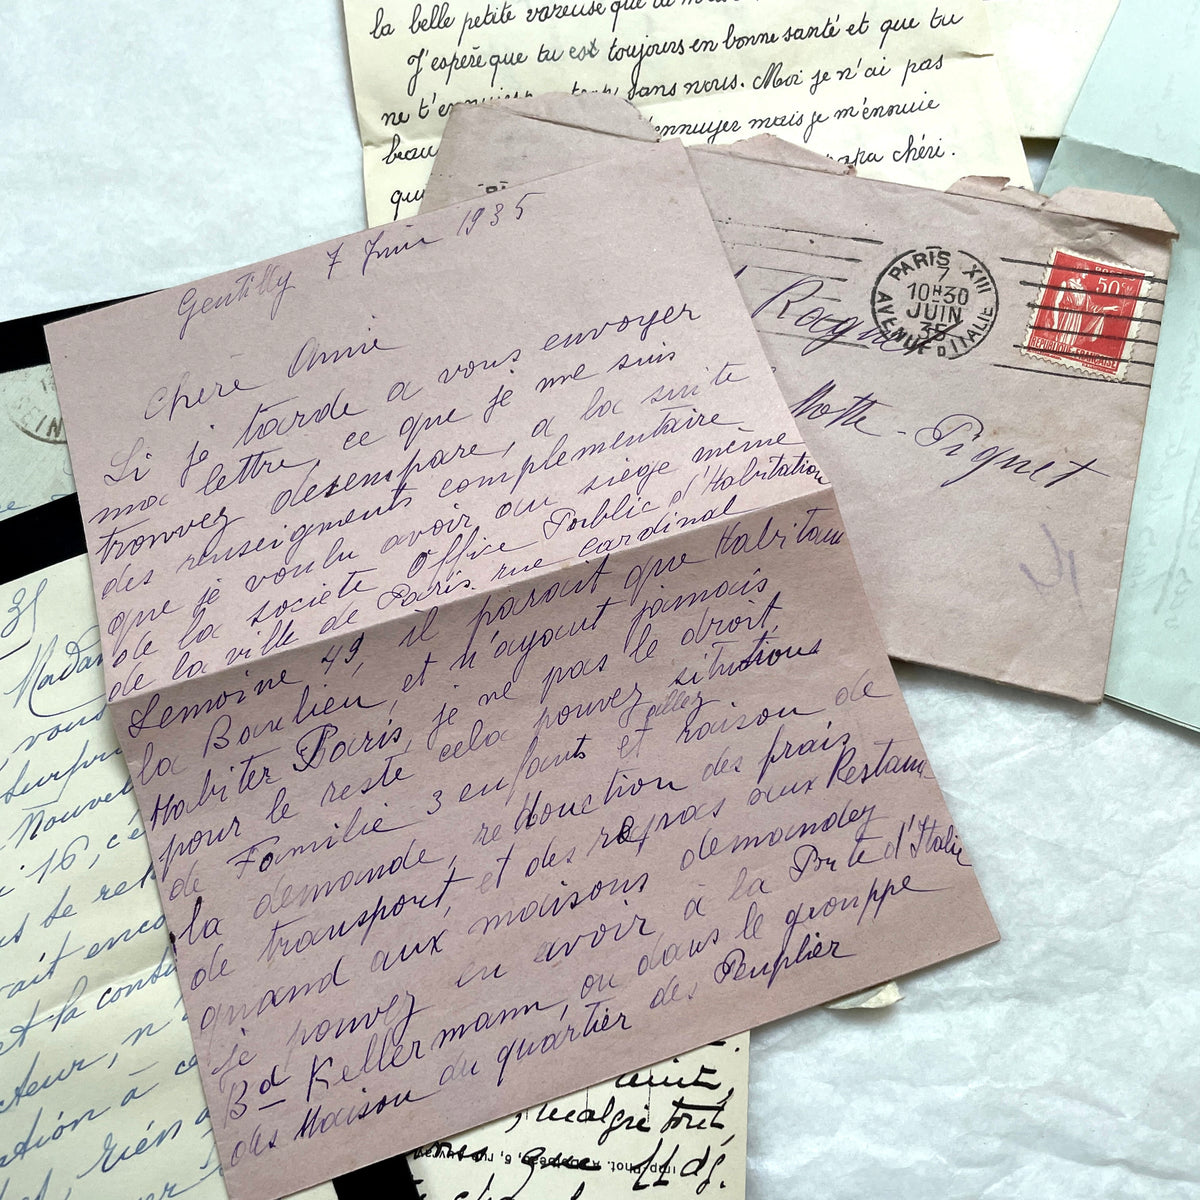 la belle petite vareuse que
J'espère que tu est toujours en bonne santé et que tu
ne t' sans nous. Moi je n'ai pas
ennuyer mais je m'ennuie
papa chéri.
Gentilly 7 Juin 1935
Chère Amie
Si je tarde a vous envoyer
ma lettre, ce que je me suis
trouvez desempare, a la suite
des renseigments complementaire
que je voulu avoir au siege même
de la societe Office Public d'Habitation
de la ville de Paris rue Cardinal
Lemoine 49, il parait que Habitant
la Banlieu, et n'ayant jamais
Habiter Paris, je ne pas le droit,
pour le reste cela pouvez situations
aillez
de Familie 3 enfants et raison de
la demande, redouction des frais
de transport, et des repas aux Restau
quand aux maisons demandez
je pouvez en avoir à la Pte d'Italie
Bd Kellermann, ou dans le grouppe
des Maison du quartier des Peuplier
PARIS XIII
7
10H30
JUIN
35
AVENUE D'ITALIE
50c
POSTES
REPUBLIQUE FRANÇAISE
Motte-Piquet
35
Madam
vous
surpri
Nouvel
16, c'e
se ret
rait enco
et la cons
cteur, n'
ation à ce
rien a
malgré tout,